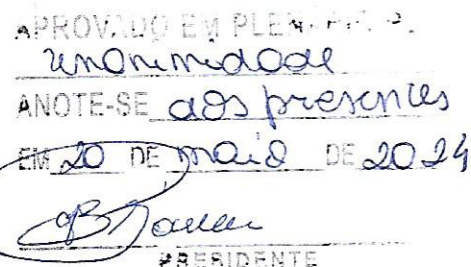 APROVADO EM PLENÁRIO P.
unanimidade
ANOTE-SE dos presentes
EM 20 DE maio DE 2024
PRESIDENTE